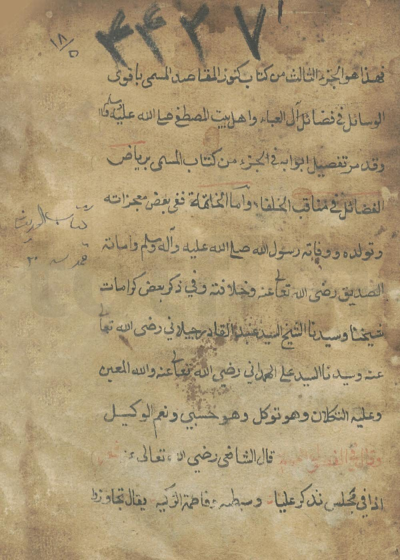 ۴۴۳۷
۱۸/۵
فهذا هو الجزء الثالث من كتاب كنوز المقاصد المسمى باقوى
الوسائل فى فضائل آل العباء واهل بيت المصطفى صلى الله عليه وسلم
وقد مر تفصيل ابوابه فى الجزء من كتاب المسمى برياض
الفضائل فى مناقب الخلفاء واما الخاتمة ففى بعض معجزاته
وتولده ووفاته رسول الله صلى الله عليه وآله وسلم وامانة
الصديق رضى الله تعالى عنه وخلافته وفي ذكر بعض كرامات
شيخنا وسيدنا الشيخ السيد عبد القادر جيلانى رضى الله تعالى
عنه وسيدنا السيد على الهمدانى رضى الله تعالى عنه والله المعين
وعليه التكلان وهو توكل وهو حسبي ونعم الوكيل
قال الشافعى رضى الله تعالى
اذا فى مجلس نذكر عليا وسبطيه وفاطمة الزكيه يقال تجاوزوا
كتاب